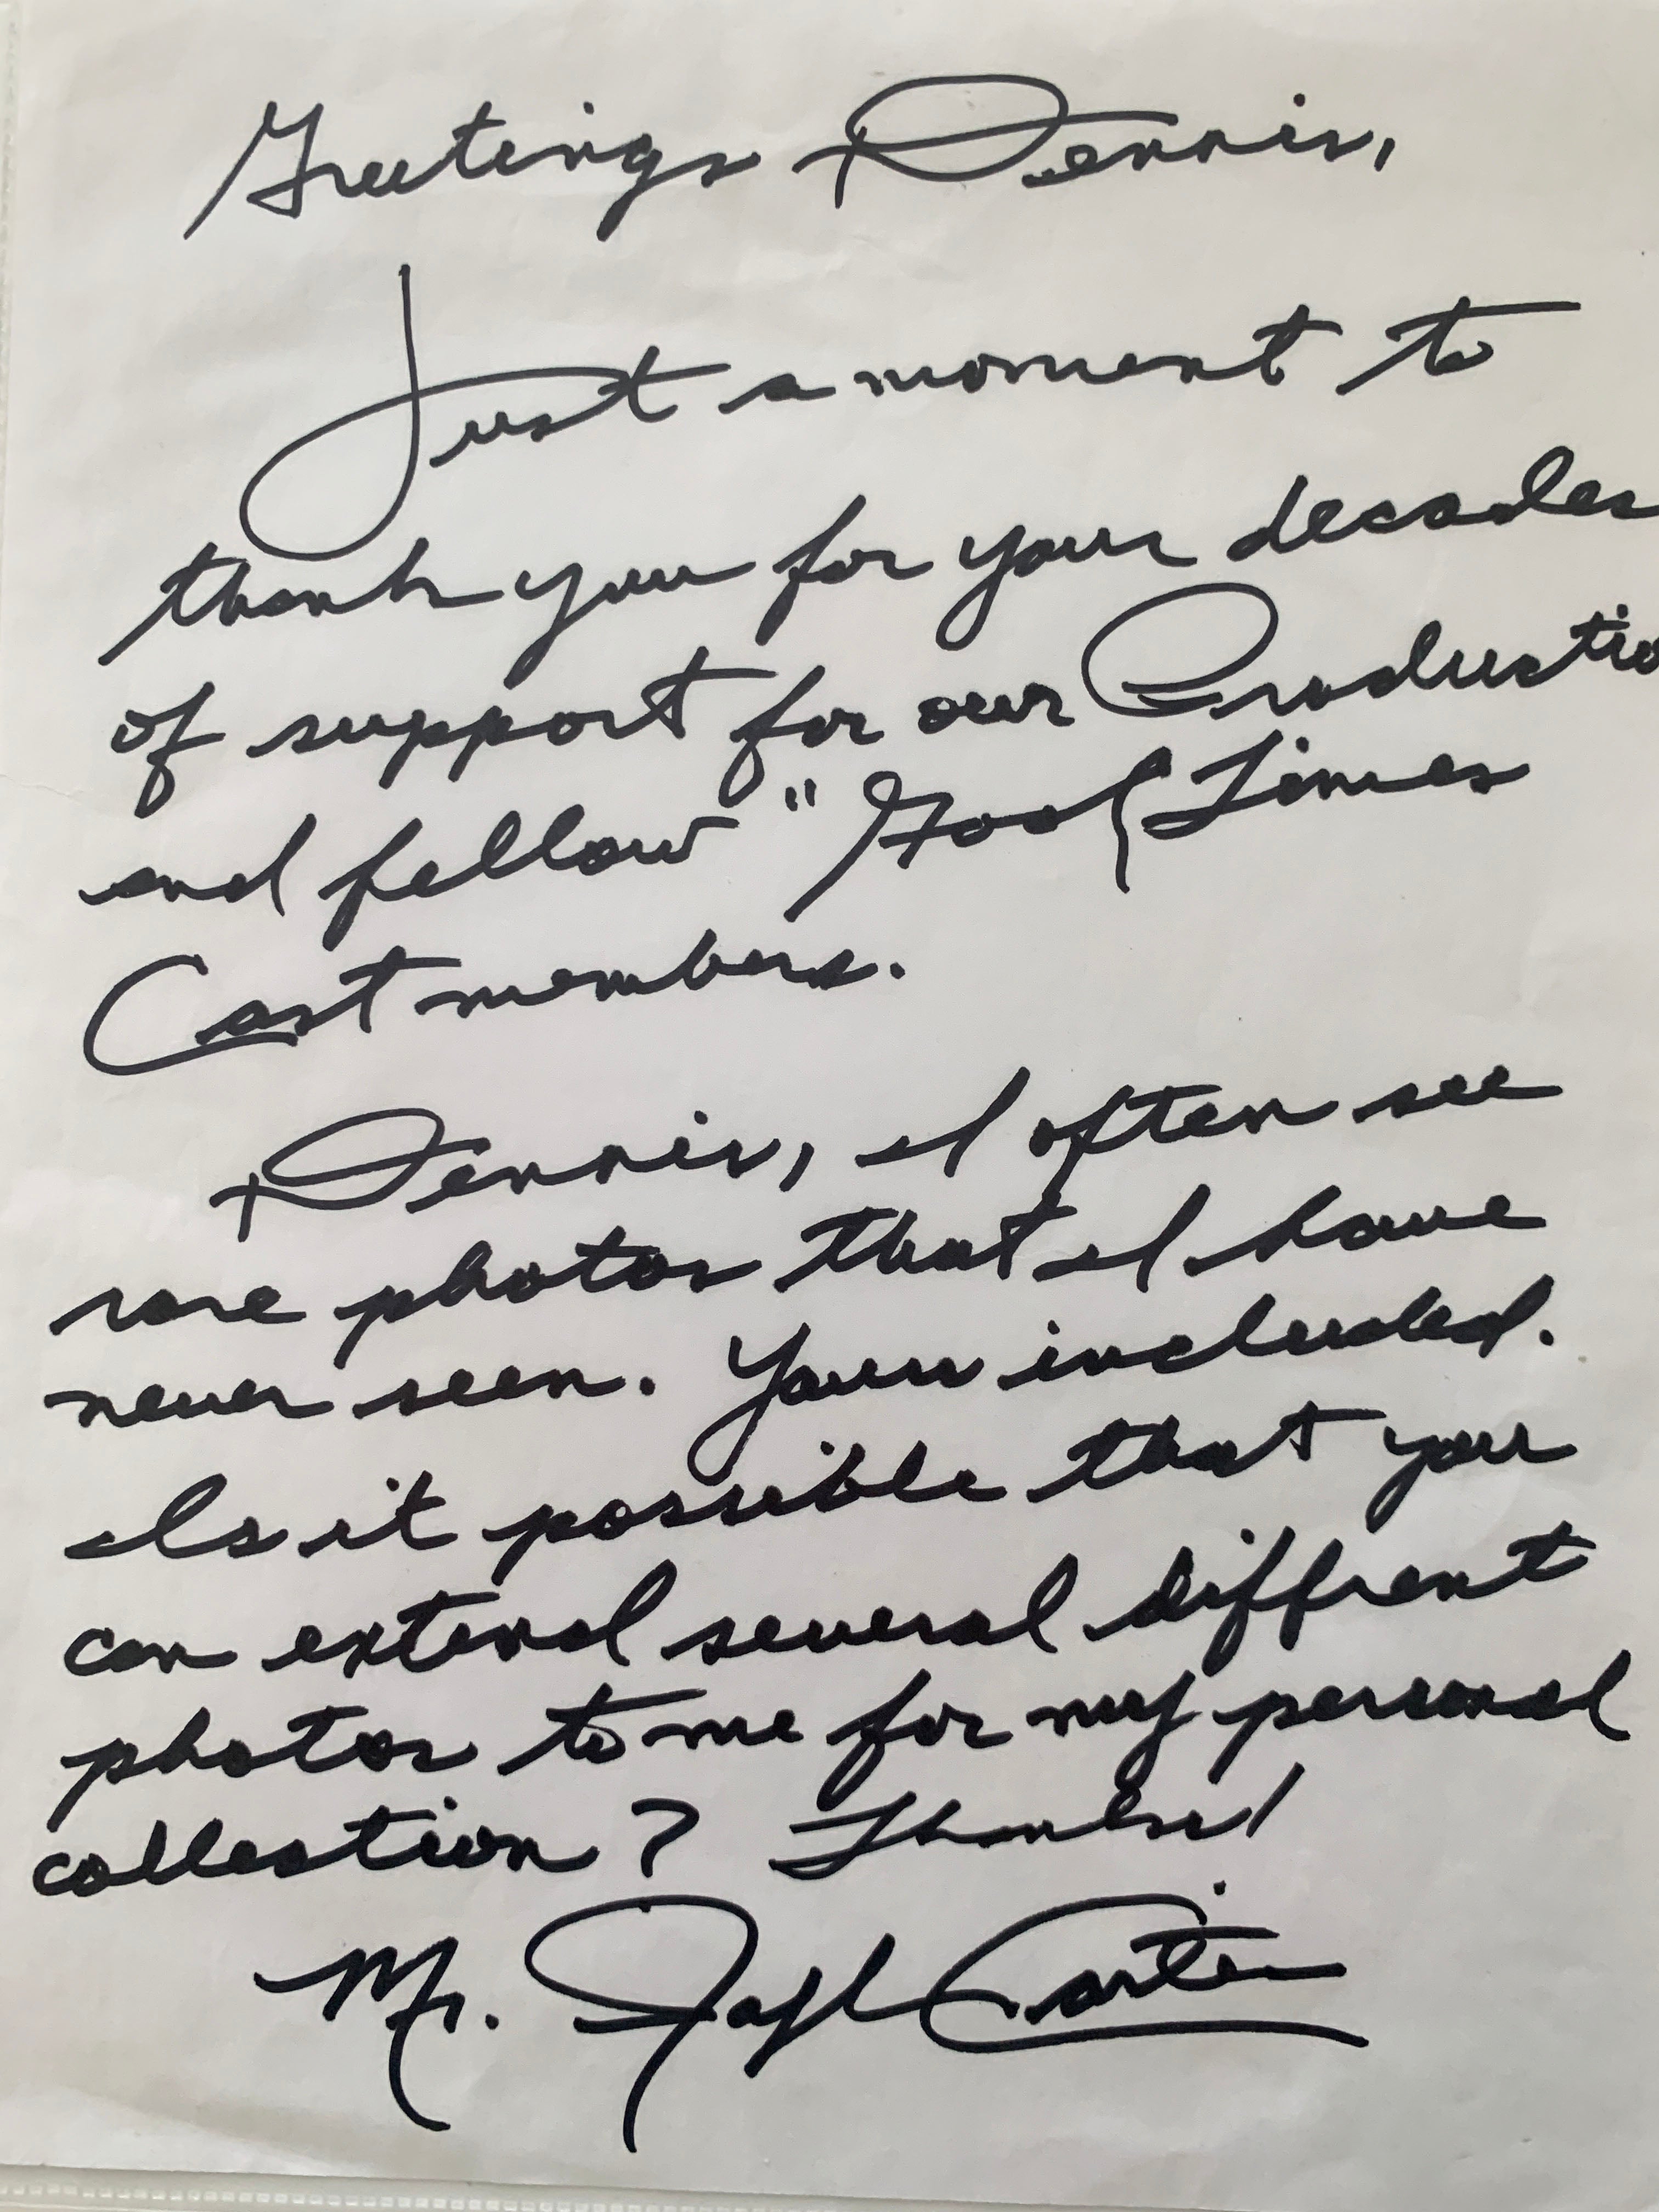 Greetings Dennis,
Just a moment to
thank you for your decades
of support for our Productio
and fellow "Good Times
Cast members.
Dennis, I often see
rare photos that I have
never seen. Yours included.
Is it possible that you
can extend several diffrent
photos to me for my personal
collection? Thanks!
Mr. Ralph Carter